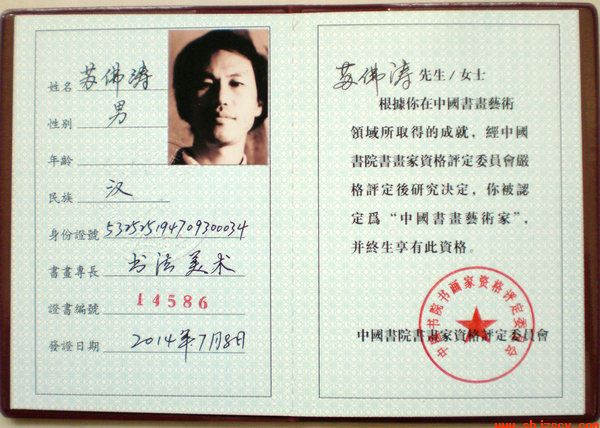 姓名 苏佛涛
性别 男
年齡
民族 汉
身份證號 532525194709300034
書畫專長 书法美术
證書編號 14586
發證日期 2014年7月8日
苏佛涛 先生/女士
根據你在中國書畫藝術
領域所取得的成就，經中國
書院書畫家資格評定委員會嚴
格評定後研究决定，你被認
定爲“中國書畫藝術家”，
并終生享有此資格。
中國書院書畫家資格評定委員會